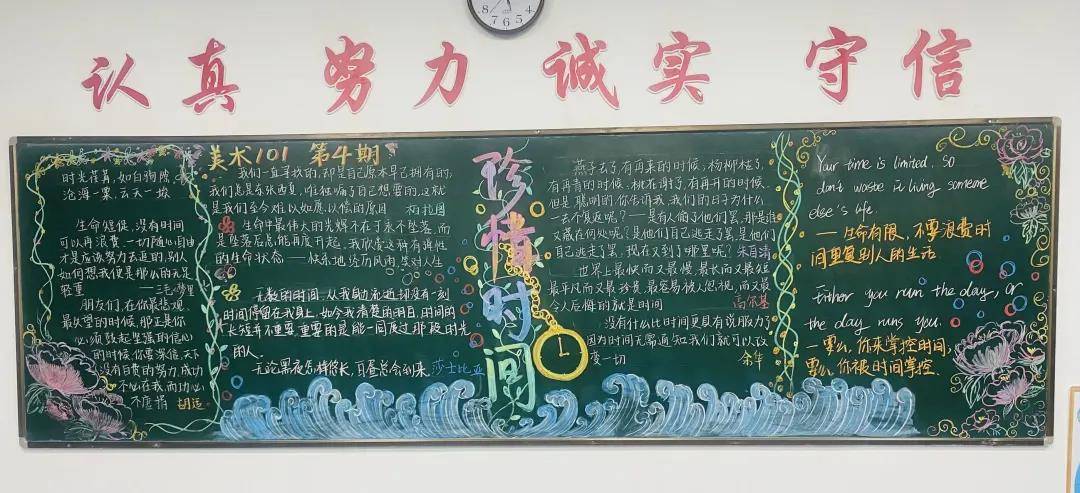 8 7 6 5 4
认真 努力 诚实 守信
时光荏苒，如白驹隙，
沧海一粟，云天一埃
生命短促，没有时间
可以再浪费，一切随心自由
才是应该努力去追的，别人
如何想我便是那么的无足
轻重 ——三毛
朋友们，在你最悲观、
最失望的时候，那正是你
必须鼓起坚强的信心
的时候，你要深信，天下
没有白费的努力，成功
不必在我，而功力
不唐捐 胡适
美术101 第4期
我们一直寻找的，却是自己原本早已拥有的；
我们总是东张西望，唯独漏了自己想要的，这就
是我们至今难以如愿以偿的原因 柏拉图
生命中最伟大的光辉不在于永不坠落，而
是坠落后总能再度升起，我欣赏这种有弹性
的生命状态——快乐地经历风雨，笑对人生
无数的时间，从我身边流逝，却没有一刻
时间停留在我身上，如今我清楚的明白，时间的
长短并不重要，重要的是能一同度过那段时光
的人。
无论黑夜怎样悠长，白昼总会到来。莎士比亚
珍惜时间
燕子去了，有再来的时候；杨柳枯了，
有再青的时候；桃花谢了，有再开的时候。
但是，聪明的，你告诉我，我们的日子为什么
一去不复返呢？——是有人偷了他们罢：那是谁？
又藏在何处呢？是他们自己逃走了罢：
现在又到了哪里呢？朱自清
世界上最快而又最慢，最长而又最短，
最平凡而又最珍贵，最容易被人忽视，而又最
令人后悔的就是时间 高尔基
没有什么比时间更具有说服力了
因为时间无需通知我们就可以改
变一切 余华
Your time is limited, so
don't waste it living someone
else's life.
——生命有限，不要浪费时
间重复别人的生活
Either you run the day, or
the day runs you.
一要么，你来掌控时间，
要么，你被时间掌控